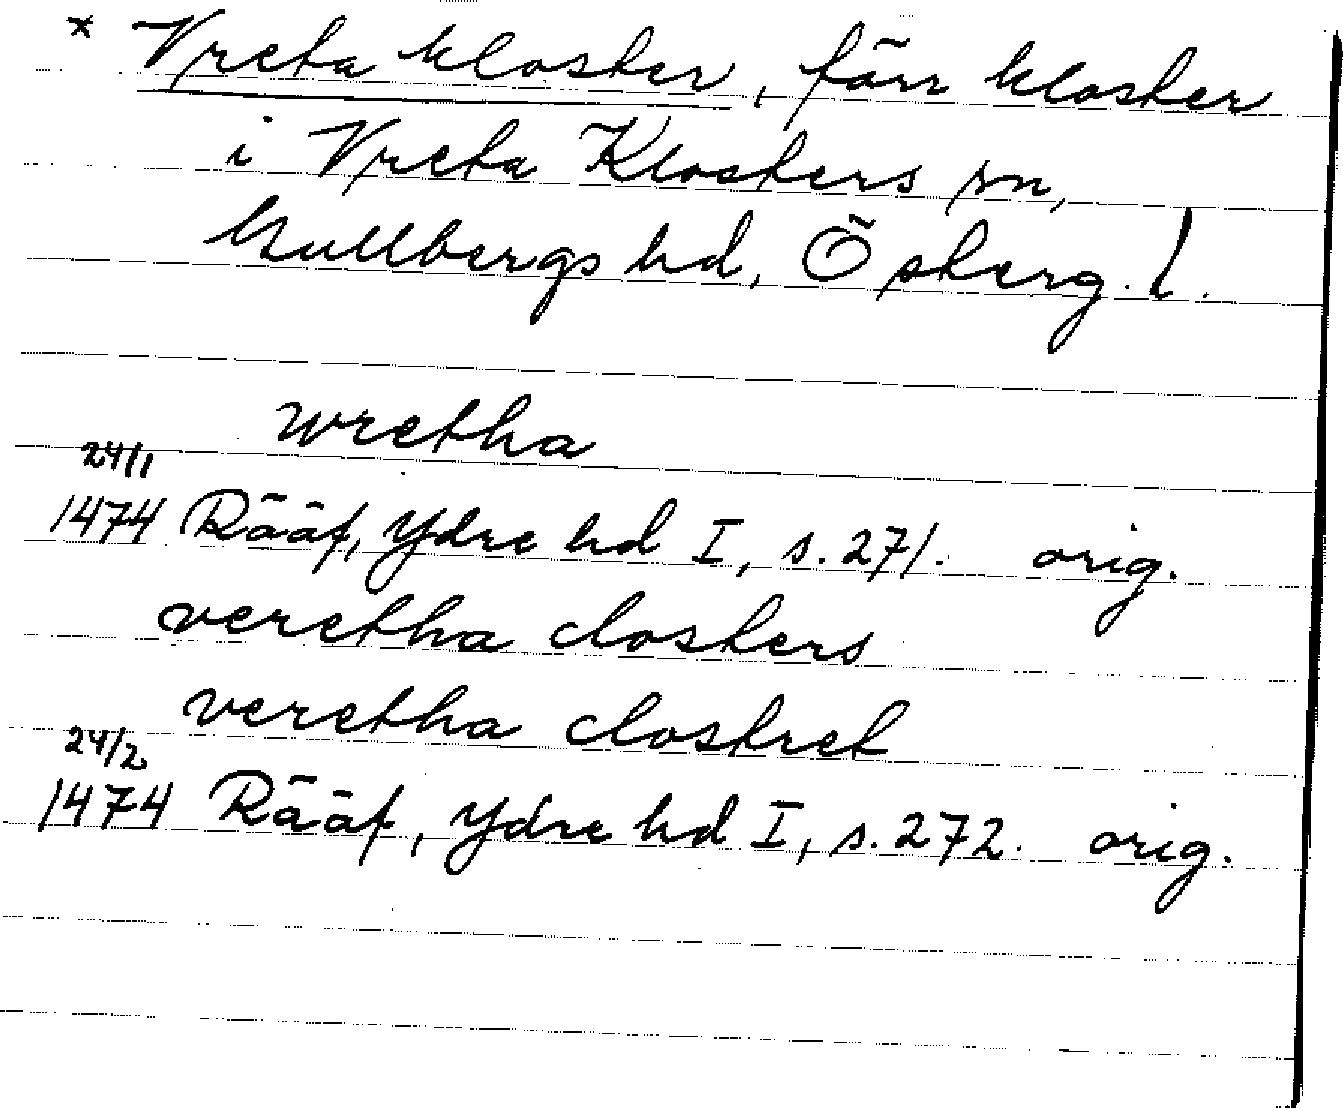 * Vreta kloster, förr kloster
i Vreta Klosters sn,
Gullbergs hd, Österg. l.
wretha
24/1
1474 Rääf, Ydre hd I, s. 271. orig.
veretha closters
veretha clostret
24/2
1474 Rääf, Ydre hd I, s. 272. orig.